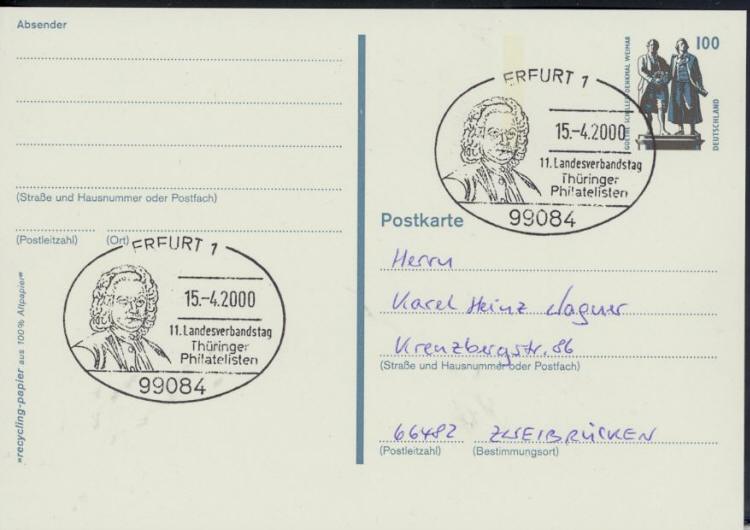 Absender
(Straße und Hausnummer oder Postfach)
(Postleitzahl) (Ort)
ERFURT 1
15.-4.2000
11.Landesverbandstag
Thüringer
Philatelisten
99084
»recycling-papier aus 100% Altpapier«
100
GOETHE-SCHILLER-DENKMAL WEIMAR
DEUTSCHLAND
ERFURT 1
15.-4.2000
11.Landesverbandstag
Thüringer
Philatelisten
99084
Postkarte
Herrn
Karel Heinz Wagner
Krenzbergstr. 86
(Straße und Hausnummer oder Postfach)
66482 ZWEIBRÜCKEN
(Postleitzahl) (Bestimmungsort)